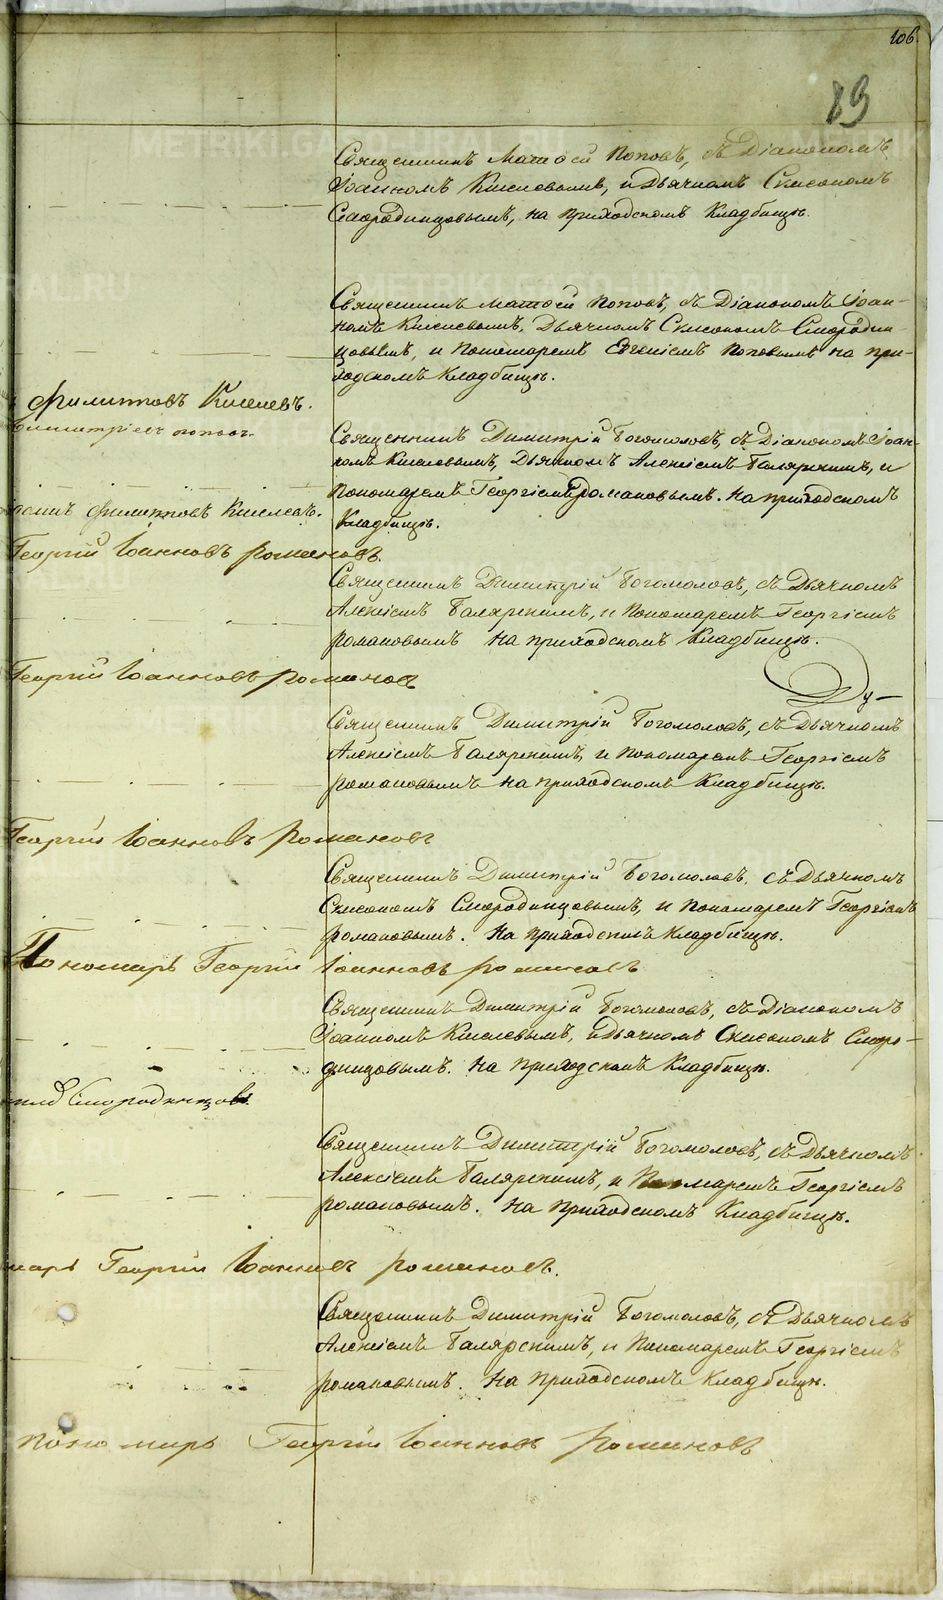 106.
89
Священникъ Матѳей Поповъ, съ Діакономъ
Іоанномъ Киселевымъ, и Дьячкомъ Симеономъ
Смородинцовымъ, на приходскомъ Кладбищѣ.
Священникъ Матѳей Поповъ, съ Діакономъ Іоан-
номъ Киселевымъ, Дьячкомъ Симеономъ Смородин-
цовымъ, и Пономаремъ Евгеніемъ Поповымъ на при-
ходскомъ Кладбищѣ.
Филиповъ Киселевъ.
Димитріевъ Поповъ.
Священникъ Димитрій Богомоловъ, съ Діакономъ Іоан-
номъ Киселевымъ, Дьячкомъ Алексіемъ Балярскимъ, и
Пономаремъ Георгіемъ Романовымъ. на приходскомъ
Кладбищѣ.
Филиповъ Киселевъ.
Георгій Іоанновъ Романовъ.
Священникъ Димитрій Богомоловъ, съ Дьячкомъ
Алексіемъ Балярскимъ, и Пономаремъ Георгіемъ
Романовымъ на приходскомъ Кладбищѣ.
Ду-
Георгій Іоанновъ Романовъ
Священникъ Димитрій Богомоловъ, съ Дьячкомъ
Алексіемъ Балярскимъ, и Пономаремъ Георгіемъ
Романовымъ на приходскомъ Кладбищѣ.
Георгій Іоанновъ Романовъ
Священникъ Димитрій Богомоловъ, съ Дьячкомъ
Симеономъ Смородинцовымъ, и Пономаремъ Георгіемъ
Романовымъ. На приходскомъ Кладбищѣ.
Пономарь Георгій Іоанновъ Романовъ
Священникъ Димитрій Богомоловъ, съ Діакономъ
Іоанномъ Киселевымъ, и Дьячкомъ Симеономъ Сморо-
динцовымъ. На приходскомъ Кладбищѣ.
Смородинцовъ.
Священникъ Димитрій Богомоловъ, съ Дьячкомъ
Алексіемъ Балярскимъ, и Пономаремъ Георгіемъ
Романовымъ. На приходскомъ Кладбищѣ.
марь Георгій Іоанновъ Романовъ.
Священникъ Димитрій Богомоловъ, съ Дьячкомъ
Алексіемъ Балярскимъ, и Пономаремъ Георгіемъ
Романовымъ. На приходскомъ Кладбищѣ.
Пономарь Георгій Іоанновъ Романовъ
METRIKI.GASO-URAL.RU